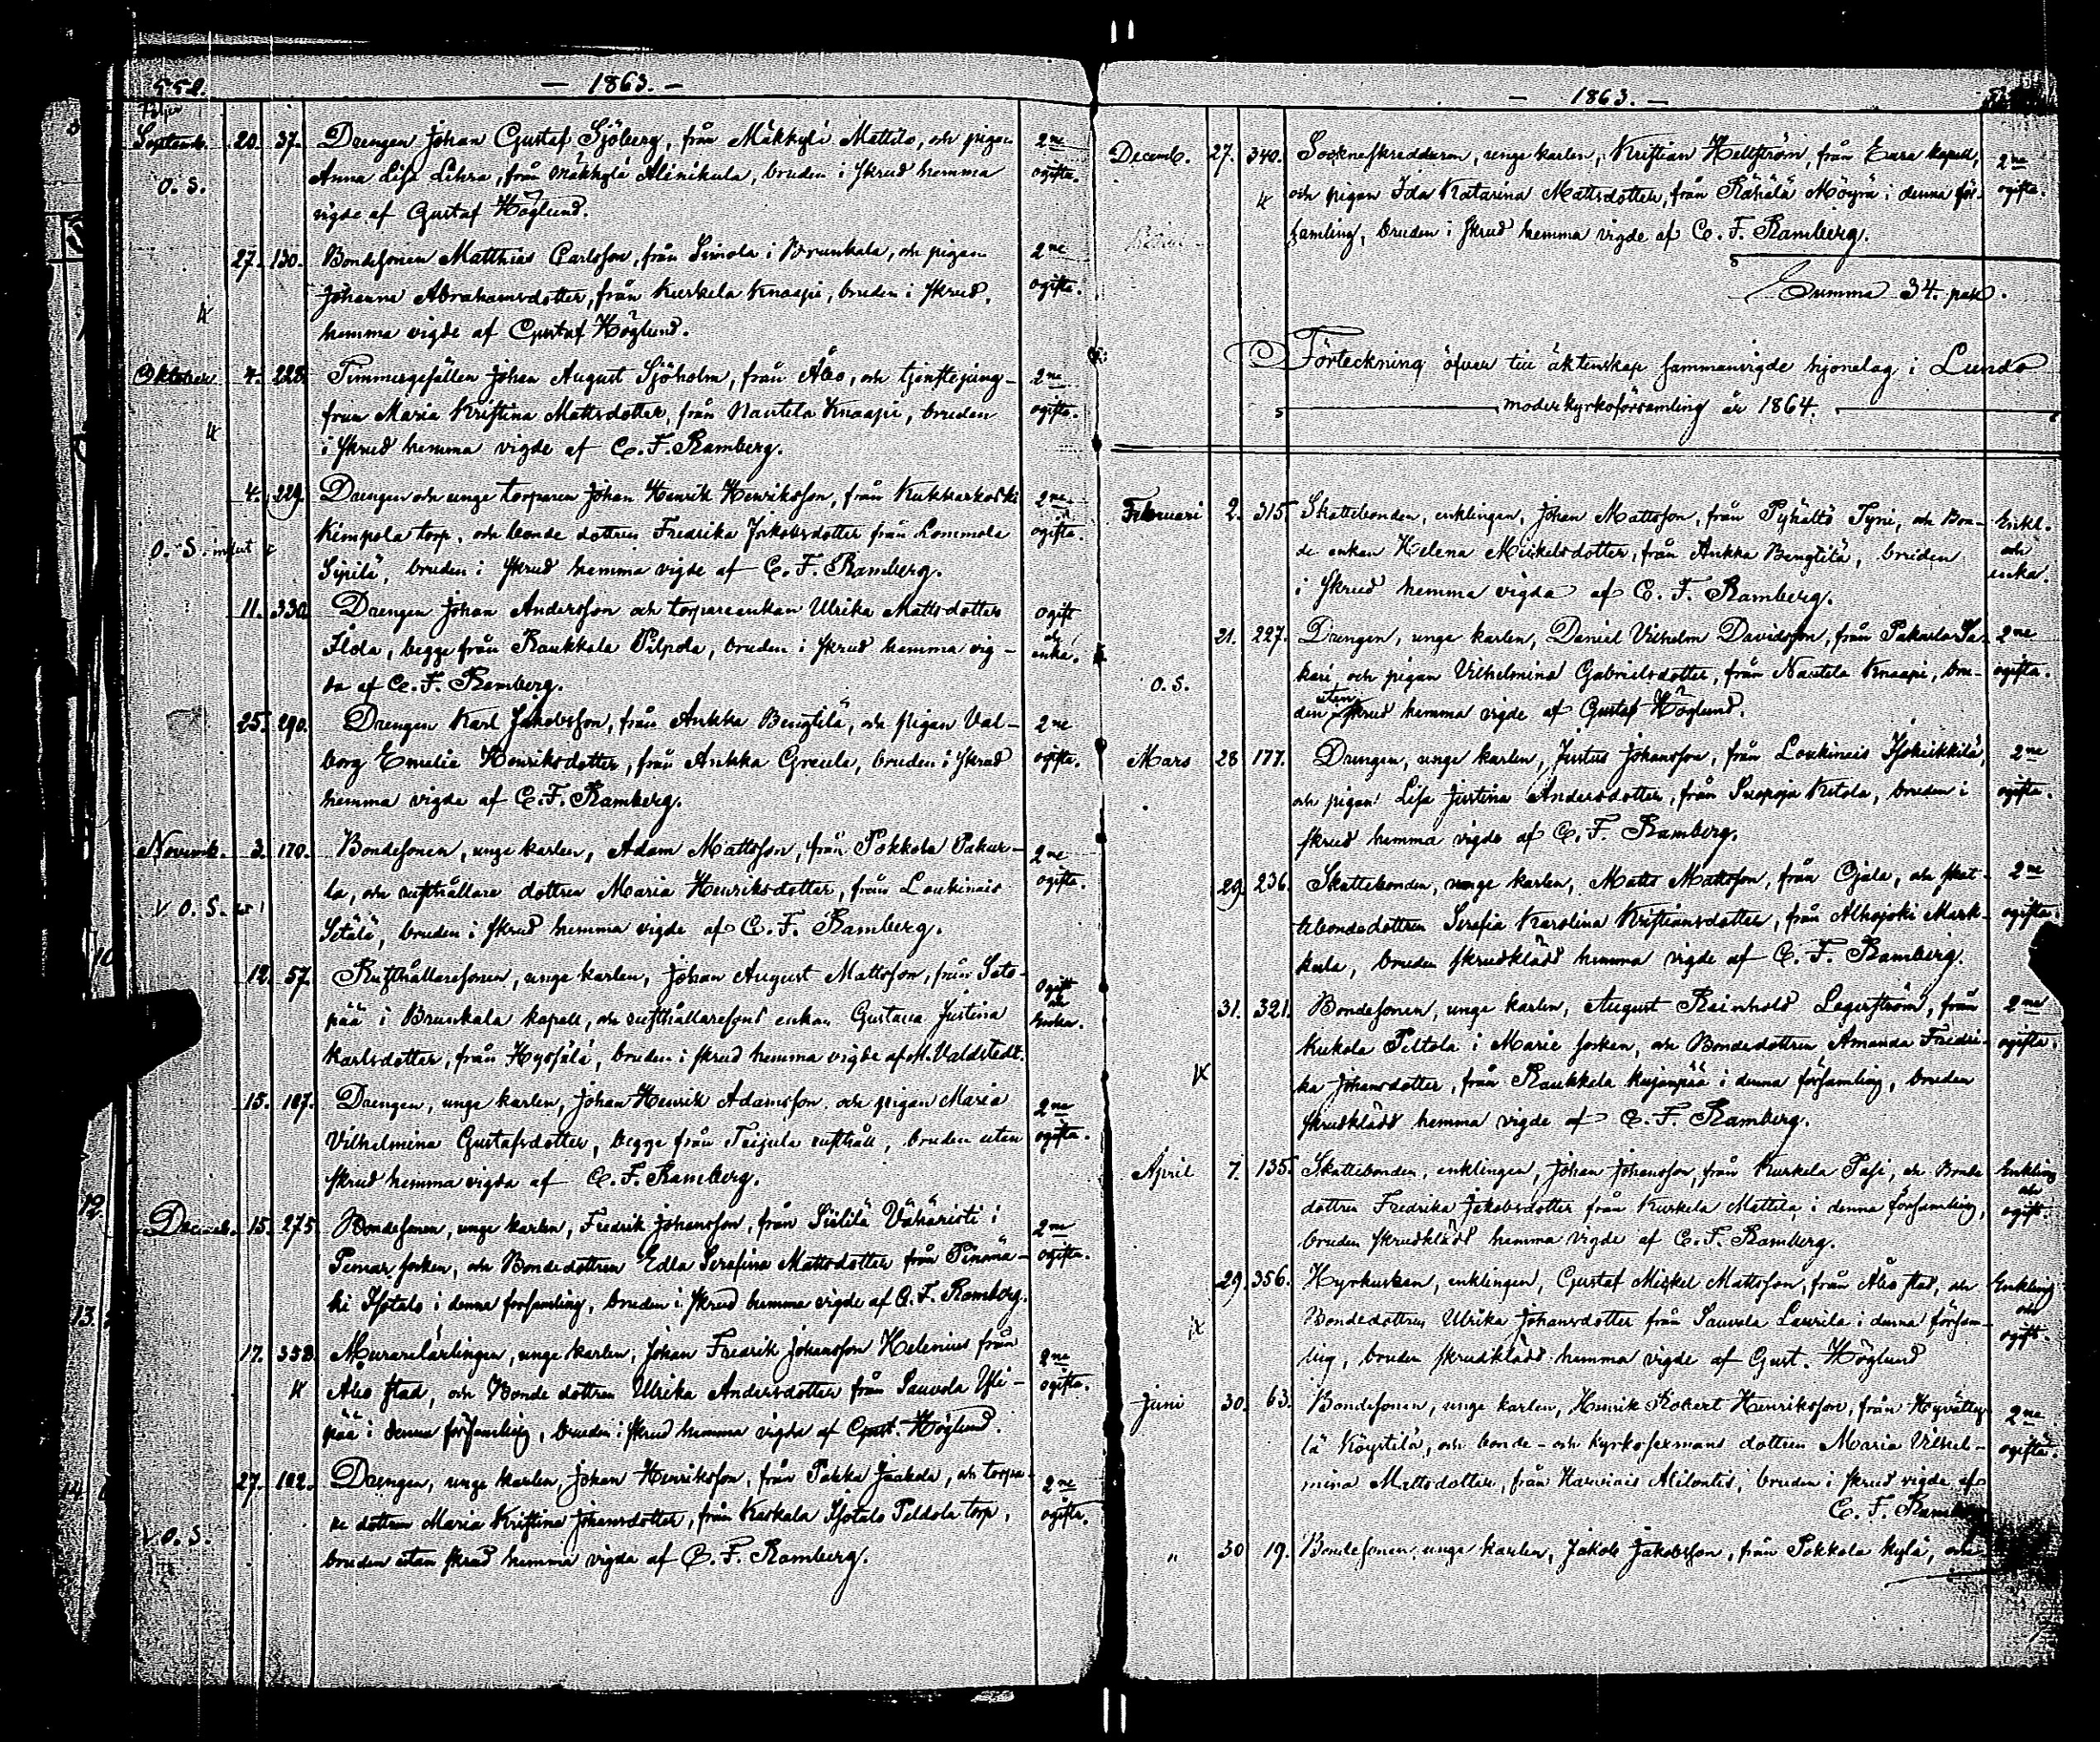 552.
— 1863. —
Septemb. 20. 37. Drengen Johan Gustaf Sjöberg, från Mäkkylä Mattila, och pigan 2ne
O. S. Anna Lisa Lehra, från Mäkkylä Alinikula, bruden i skrud hemma ogifta.
vigde af Gustaf Höglund.
27. 130. Bondesonen Matthias Carlsson, från Simola i Brunkala, och pigan 2ne
Johanna Abrahamsdotter, från Kurkela Knaapi, bruden i skrud, ogifta.
hemma vigde af Gustaf Höglund.
Oktober 4. 228. Timmergesällen Johan August Sjöholm, från Åbo, och tjenstejung- 2ne
frun Maria Kristina Mattsdotter, från Nautela Knaapi, bruden ogifta.
i skrud hemma vigde af C. F. Ramberg.
4. 229. Drengen och unge torparen Johan Henrik Henriksson, från Kukkarkoski 2ne
O. S. Kimpola torp, och bonde dottren Fredrika Jakobsdotter från Lommola ogifta.
Sipilä, bruden i skrud hemma vigde af C. F. Ramberg.
11. 330. Drengen Johan Andersson och torpareenkan Ulrika Mattsdotter Ogift
Flola, begge från Raukkala Pilpola, bruden i skrud hemma vig- och enka.
da af C. F. Ramberg.
25. 290. Drengen Karl Jakobsson, från Ankka Bengtilä, och pigan Val- 2ne
borg Emelia Henriksdotter, från Ankka Greula, bruden i skrud ogifta.
hemma vigde af C. F. Ramberg.
Novemb. 3. 170. Bondesonen, unge karlen, Adam Mattsson, från Pokkola Pakur- 2ne
la, och rusthållare dottren Maria Henriksdotter, från Loukinais ogifta.
V O. S. Setälä, bruden i skrud hemma vigde af C. F. Ramberg.
12. 57. Rusthållaresonen, unge karlen, Johan August Mattsson, från Sato- Ogift
pää i Brunkala kapell, och rusthållaresons enkan Gustava Justina och Enka.
Karlsdotter, från Hypsälä, bruden i skrud hemma vigde af M. Valdstedt.
15. 187. Drengen, unge karlen, Johan Henrik Adamsson och pigan Maria 2ne
Vilhelmina Gustafsdotter, begge från Teijula rusthåll, bruden utan ogifta.
skrud hemma vigda af C. F. Ramberg.
Decemb. 15. 275. Bondesonen, unge karlen, Fredrik Johansson, från Siililä Vähäristi i 2ne
Pemar socken, och Bondedottren Edla Serafina Mattsdotter från Tinomä- ogifta.
ki Isotalo i denna församling, bruden i skrud hemma vigde af C. F. Ramberg.
17. 358. Murarelärlingen, unge karlen, Johan Fredrik Johansson Helenius från 2ne
Åbo stad, och Bonde dottren Ulrika Andersdotter från Sauvola Yli- ogifta.
pää i denna församling, bruden i skrud hemma vigda af Gust. Höglund.
27. 182. Drengen, unge karlen Johan Henriksson, från Pakka Jaakola, och torpa- 2ne
re dottren Maria Kristina Johansdotter, från Kaskala Isotalo Peldola torp, ogifta.
V. O. S. bruden utan skrud hemma vigda af C. F. Ramberg.
— 1863. —
Decemb. 27. 340. Sockneskreddaren, unge karlen, Kristian Hellström, från Eura kapell, 2ne
och pigan Ida Katarina Mattsdotter, från Rähälä Möyrä i denna för- ogifta.
samling, bruden i skrud hemma vigde af C. F. Ramberg.
Summa 34. par.
Förteckning öfver till äktenskap sammanvigde hjonelag i Lundo
moderkyrkoförsamling år 1864.
Februari 2. 315. Skattebonden, enklingen, Johan Mattsson, från Pyhältö Tyni, och Bon- Enkl.
de enkan Helena Mickelsdotter, från Ankka Bengtilä, bruden och
i skrud hemma vigda af C. F. Ramberg. enka.
21. 227. Drengen, unge karlen, Daniel Vilhelm Davidsson, från Pakurla Sa- 2ne
O. S. kari, och pigan Vilhelmina Gabrielsdotter, från Nautela Knaapi, bru- ogifta.
den utan skrud hemma vigde af Gustaf Höglund.
Mars 28 177. Drengen, unge karlen, Justus Johansson, från Loukinais Isoheikkilä, 2ne
och pigan Lisa Justina Andersdotter, från Suopoja Ketola, bruden i ogifta.
skrud hemma vigde af C. F. Ramberg.
29. 236. Skattebonden, unge karlen, Matts Mattsson, från Ojala, och skat- 2ne
tebondedottren Serafia Karolina Kristiansdotter, från Alhojoki Mark- ogifta.
kula, bruden skrudklädd hemma vigde af C. F. Ramberg.
31. 321. Bondesonen, unge karlen, August Reinhold Lagerström, från 2ne
Kukola Peltola i Marie socken, och Bondedottren Amanda Fredri- ogifta.
ka Johansdotter, från Raukkala Kujanpää i denna församling, bruden
skrudklädd hemma vigde af C. F. Ramberg.
April 7. 135. Skattebonden, enklingen, Johan Johansson, från Kurkela Pasi, och Bonde Enkling
dottren Fredrika Jakobsdotter från Kurkela Mattila i denna församling, och ogift.
bruden skrudklädd hemma vigde af C. F. Ramberg.
29. 356. Hyrkusken, enklingen, Gustaf Mickel Mattsson, från Åbo stad, och Enkling
Bondedottren Ulrika Johansdotter från Sauvola Laurila i denna försam- och
ling, bruden skrudklädd hemma vigde af Gust. Höglund ogift.
Juni 30. 63. Bondesonen, unge karlen, Henrik Robert Henriksson, från Hyvätty- 2ne
lä Köystilä, och bonde- och kyrkosexmans dottren Maria Vilhel- ogifta.
mina Mattsdotter, från Harvinais Alilontis, bruden i skrud vigde af
C. F. Ramberg
" 30 19. Bondesonen unge karlen, Jakob Jakobsson, från Pokkola kylä, och